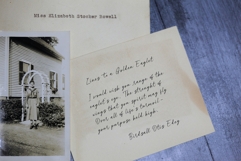 Miss Elizabeth Stocker Howell
Lines to a Golden Eaglet
I would wish you range of the
eaglet's eye. The strength of
wings that you spirit may fly
Over all of life's turmoil -
your purpose held high.
Birdsall Otis Edey